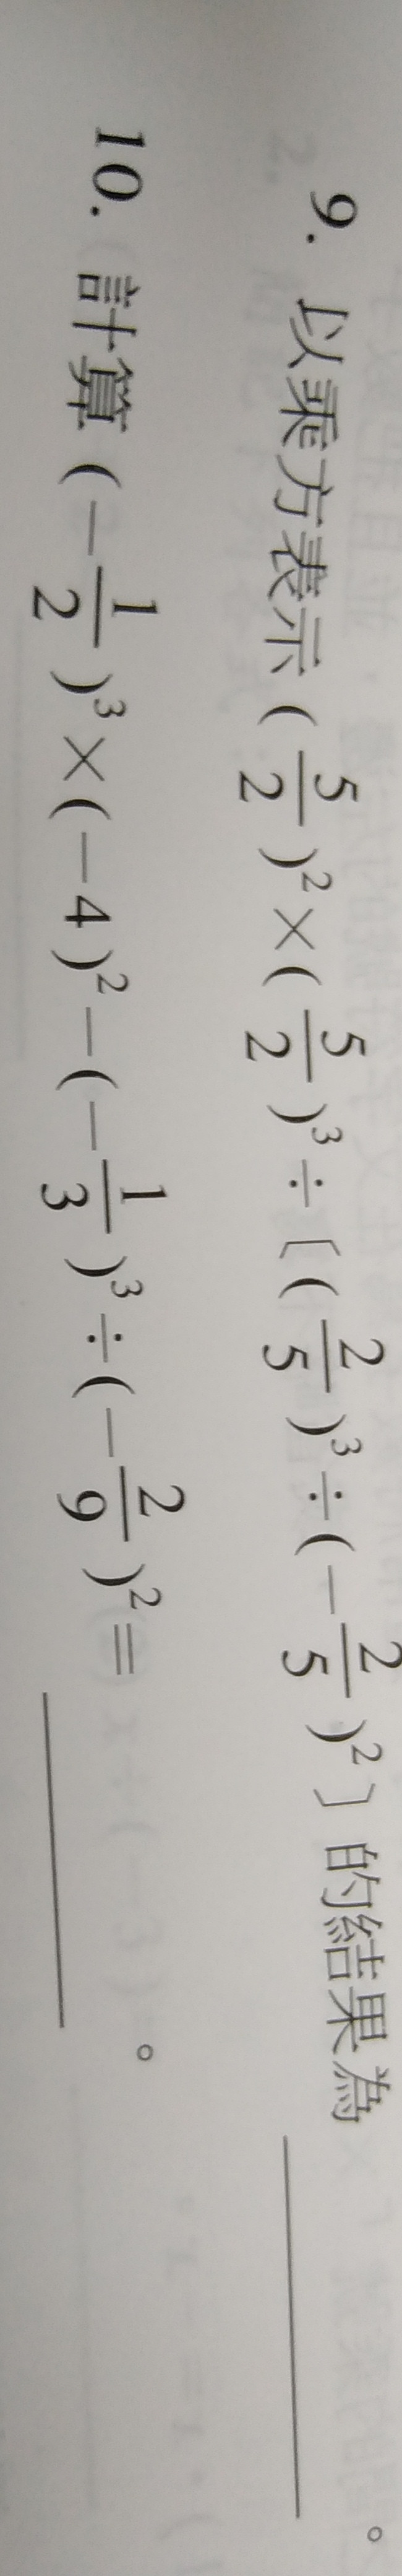 9. 以乘方表示 (5/2)²×(5/2)³÷〔(2/5)³÷(－2/5)²〕的結果為＿＿＿＿＿＿。
10. 計算 (－1/2)³×(－4)²－(－1/3)³÷(－2/9)²＝＿＿＿＿＿＿。